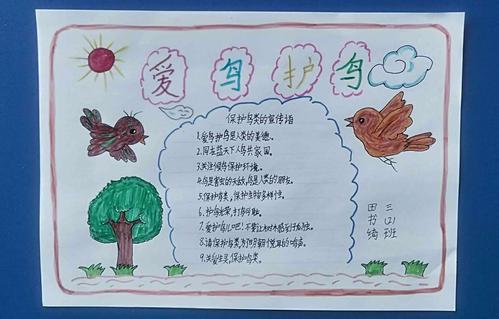 爱鸟护鸟
保护鸟类的宣传语
1.爱鸟护鸟是人类的美德。
2.同在蓝天下人鸟共家园。
3.关注候鸟保护环境。
4.鸟是害虫的天敌,鸟是人类的朋友。
5.保护鸟类,保护生物多样性。
6.护鸟光荣,打鸟可耻。
7.爱护鸟儿吧!不要让树木感到孤独。
8.请保护鸟类,别把翠翻悦耳的鸣声。
9.关爱生灵,保护鸟类。
三(2)班
田书绮